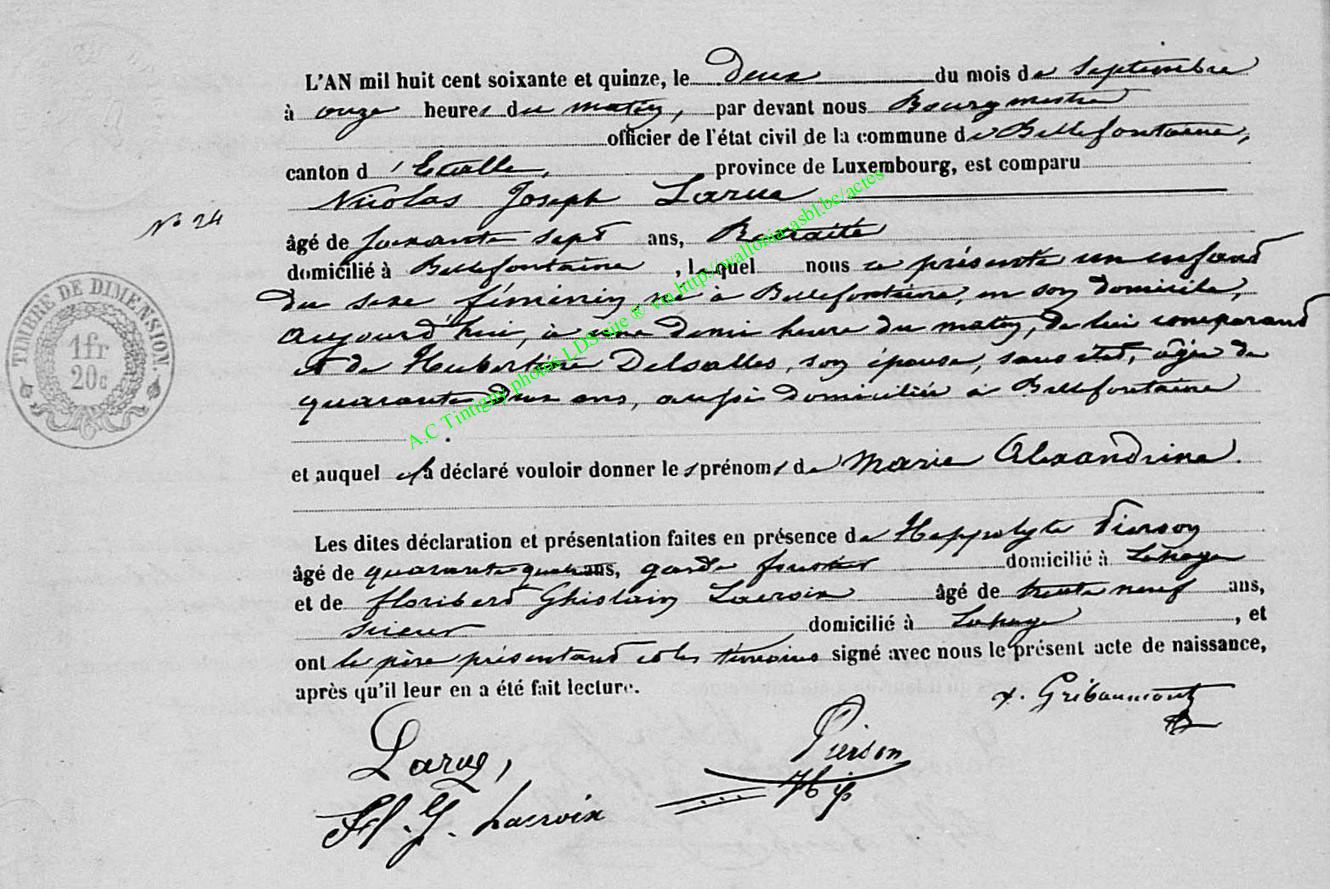 L'AN mil huit cent soixante et quinze, le deux du mois de Septembre
à onze heures du matin, par devant nous Bourgmestre
officier de l'état civil de la commune de Bellefontaine,
canton d'Etalle, province de Luxembourg, est comparu
Nicolas Joseph Larue
N° 24
âgé de soixante sept ans, Retraité
domicilié à Bellefontaine, lequel nous a présenté un enfant
du sexe féminin, né à Bellefontaine, en son domicile,
aujourd'hui, à une demi heure du matin, de lui comparant
et de Hubertine Delsalles, son épouse, sans état, âgée de
quarante deux ans, aussi domiciliée à Bellefontaine
et auquel il a déclaré vouloir donner les prénoms de Marie Alexandrine.
Les dites déclaration et présentation faites en présence de Hyppolyte Pierson
âgé de quarante ans, garde forestier domicilié à Lahage
et de Floribert Ghislain Lacroix âgé de trente neuf ans,
scieur domicilié à Lahage, et
ont le père présentant et les témoins signé avec nous le présent acte de naissance,
après qu'il leur en a été fait lecture.
Gribaumont
Larue,
Pierson
Hip
Fl. G. Lacroix
TIMBRE DE DIMENSION.
1fr
20c
A.C Tintigny photos LDS vue ® via http://wallonia-asbl.be/actes